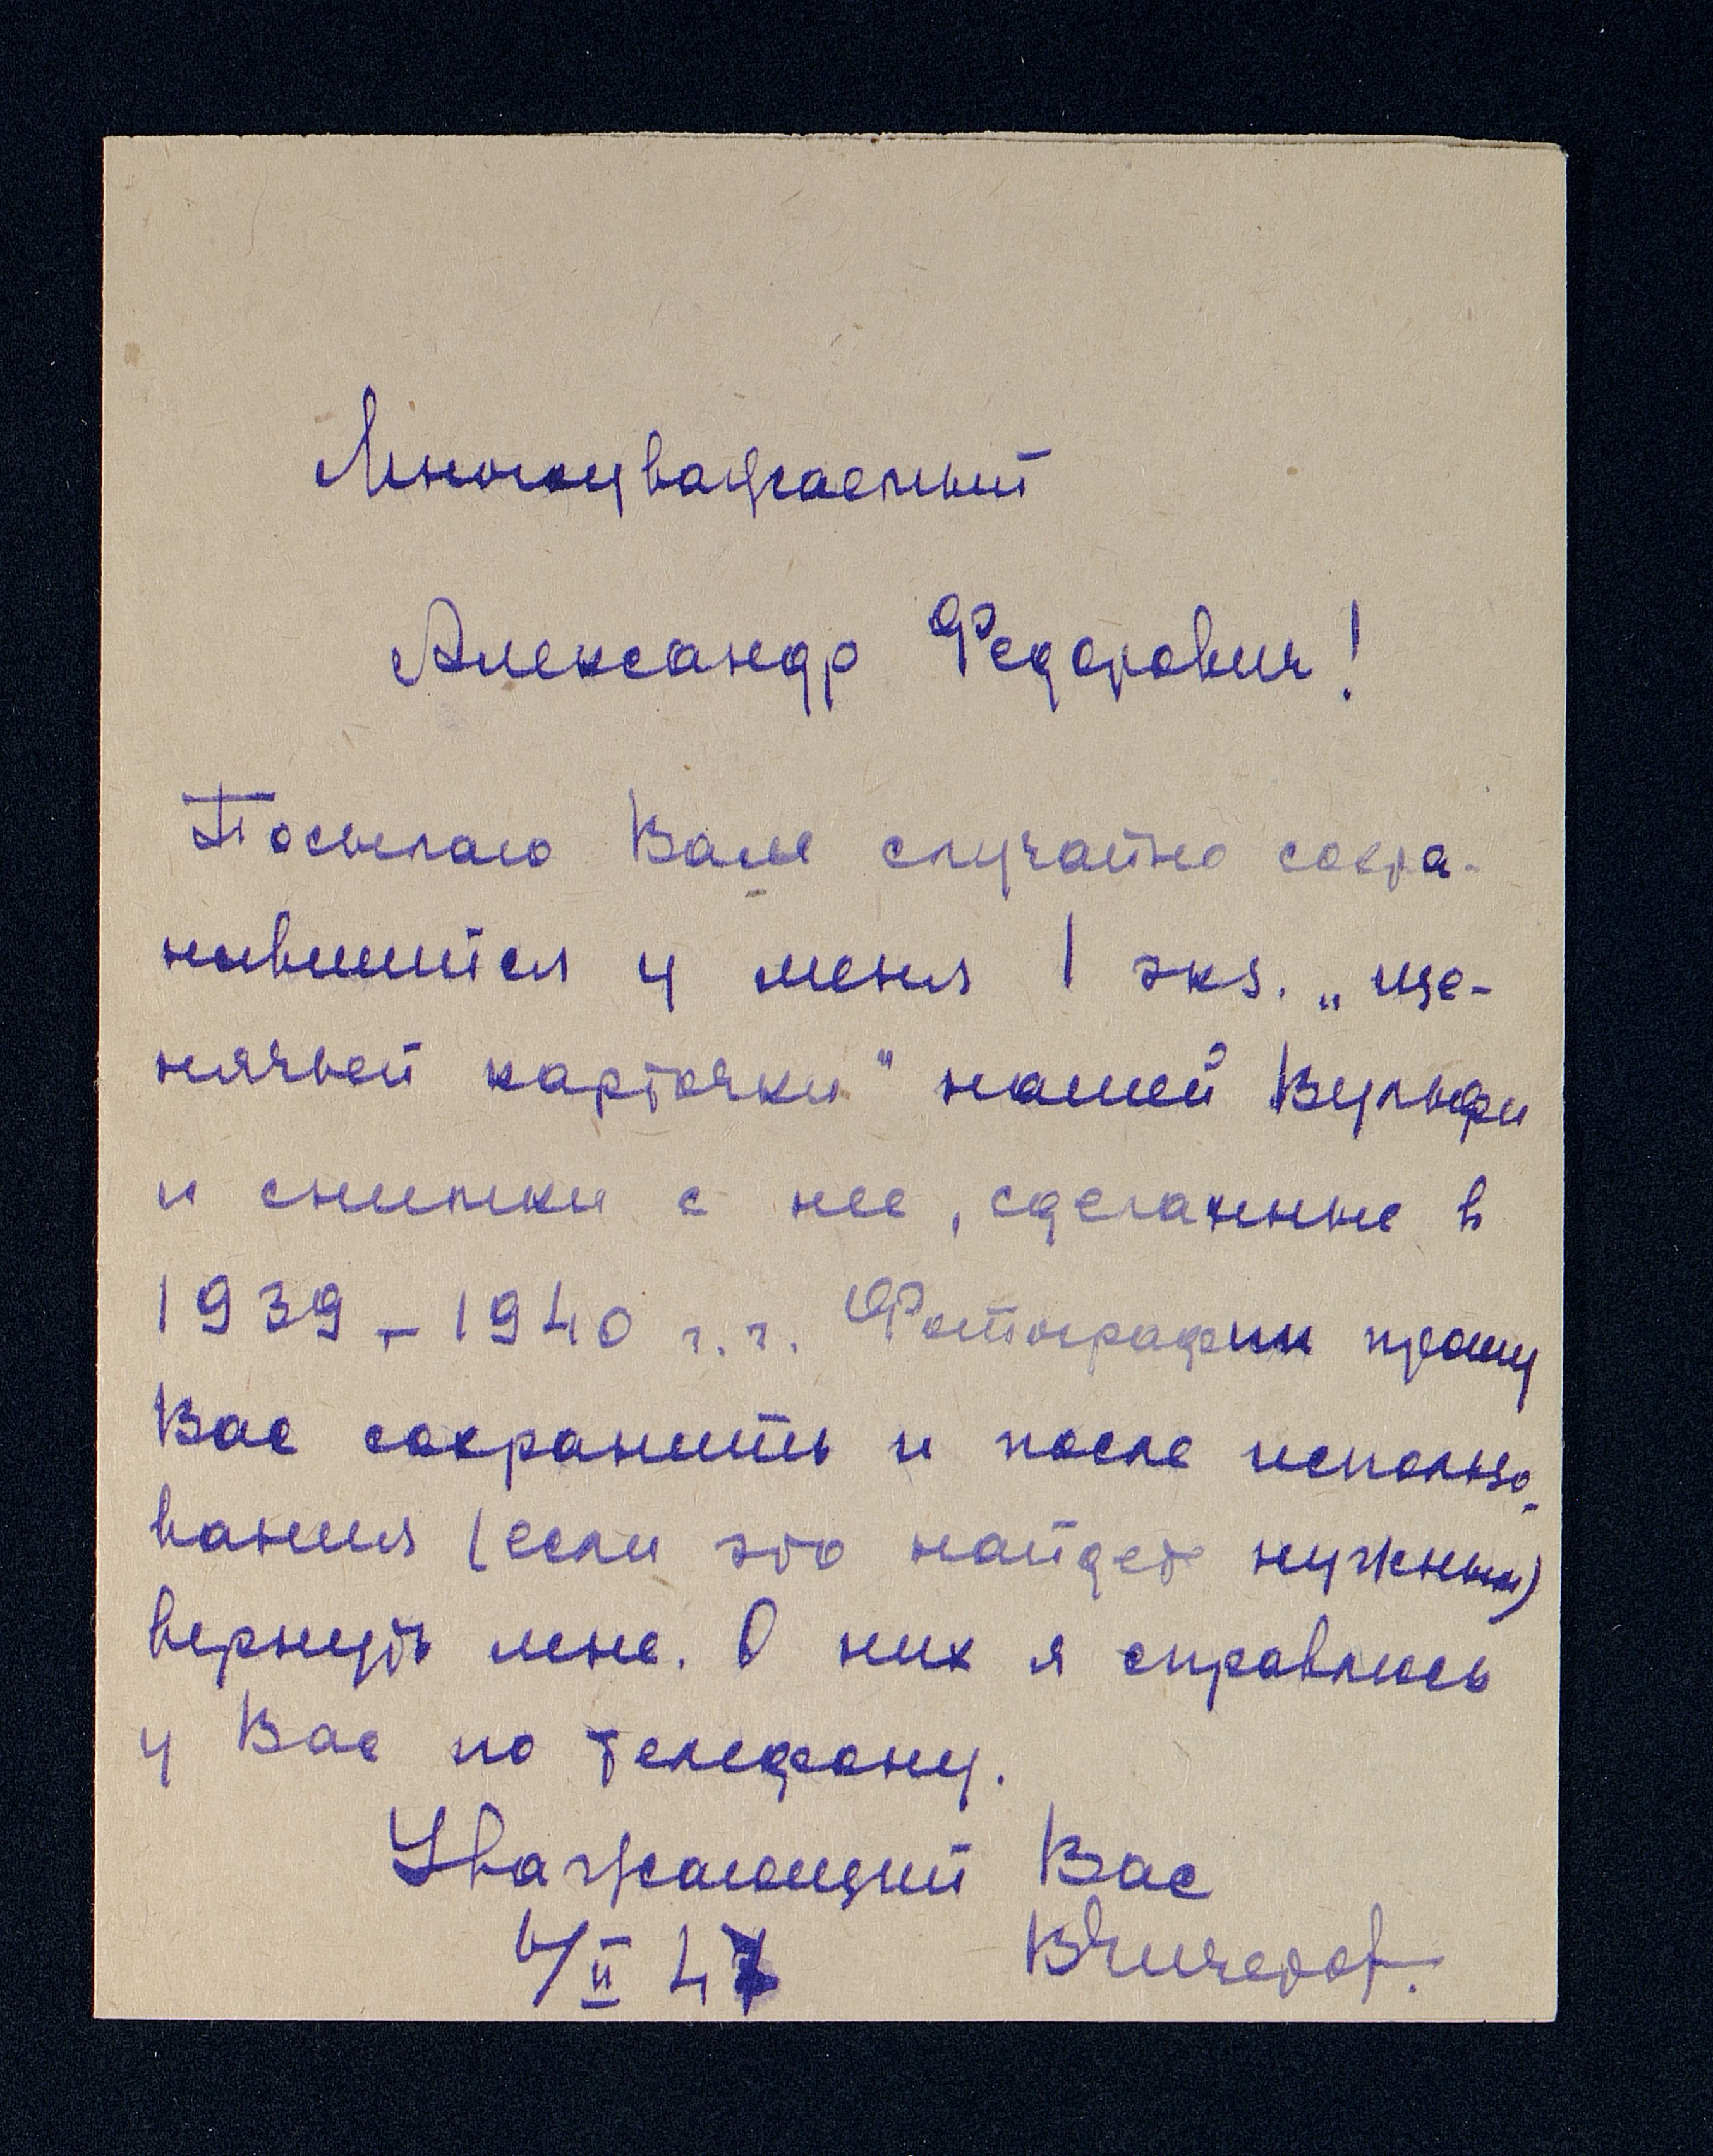 Многоуважаемый
Александр Федорович!
Посылаю Вам случайно сохра-
нившийся у меня 1 экз. „ще-
нячьей карточки" нашей Вульфи
и снимки с нее, сделанные в
1939–1940 г.г. Фотографии прошу
Вас сохранить и после использо-
вания (если это найдет нужным)
вернуть мне. О них я справлюсь
у Вас по телефону.
Уважающий Вас
6/II 47